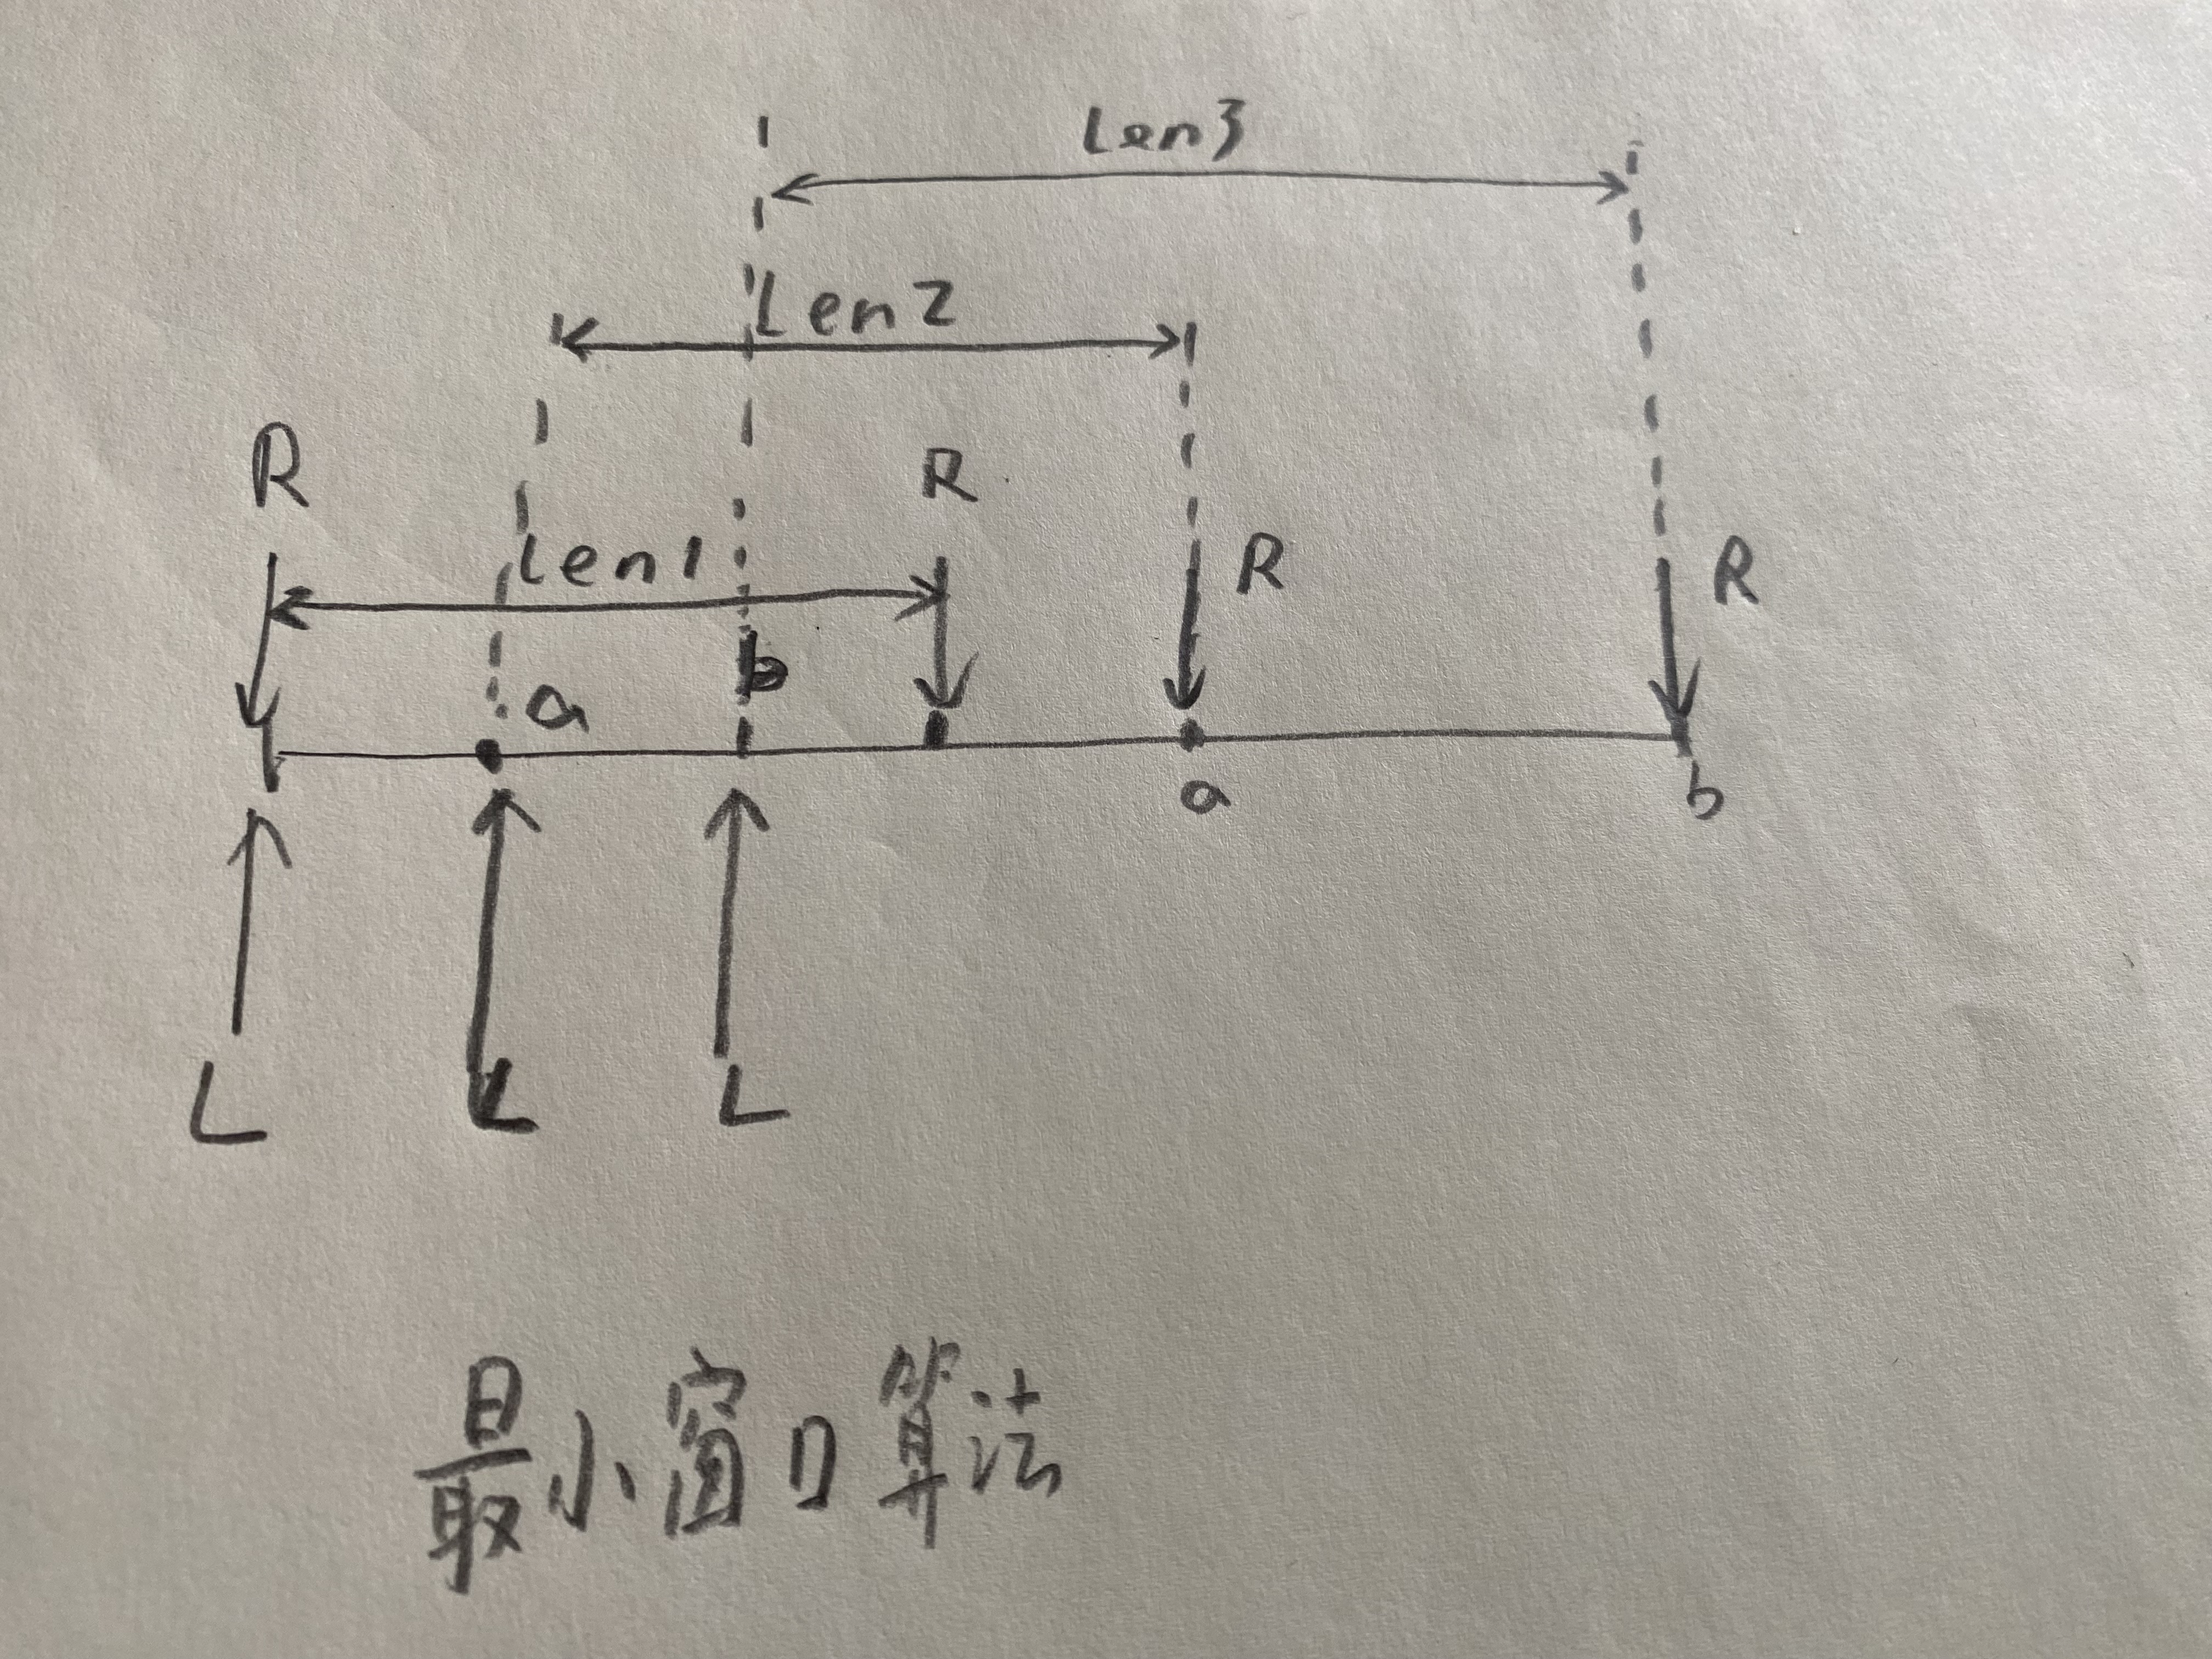 Len3
Len2
R R
Len1 R R
a b
a b
L L L
最小窗口算法